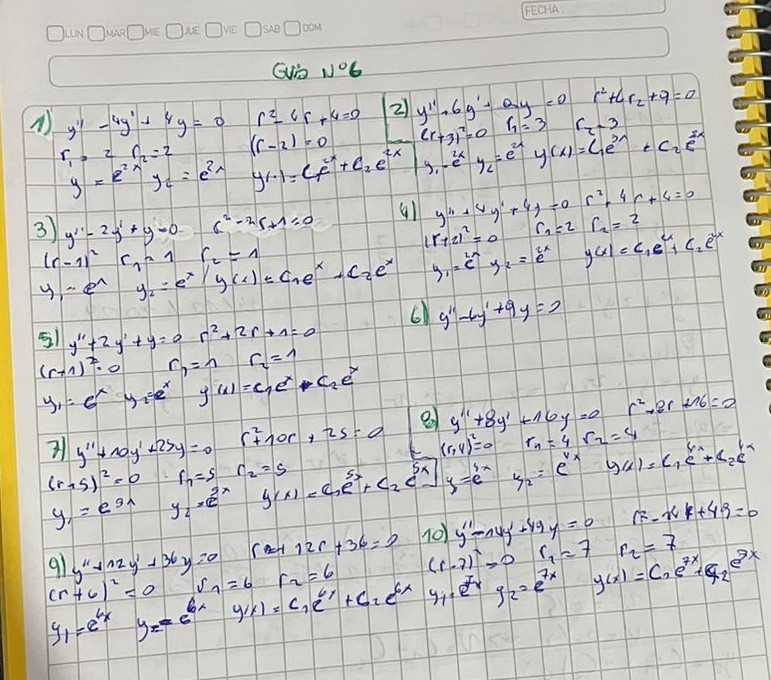 FECHA:
LUN MAR MIE JUE VIE SAB DOM
Guía Nº6
1) y'' - 4y' + 4y = 0 r² - 4r + 4 = 0
(r-2) = 0
r₁ = 2 r₂ = 2
y = e^2x y₂ = e^2x y(x) = C₁e^2x + C₂e^2x
2) y'' + 6y' + 9y = 0 r² + 6r₂ + 9 = 0
(r+3)² = 0 r₁ = 3 r₂ = 3
y₂ = e^2x y(x) = C₁e^3x + C₂e^3x
3) y'' - 2y' + y = 0 r² - 2r + 1 = 0
(r-1)² r₁ = 1 r₂ = 1
y₁ = e^x y₂ = e^x y(x) = C₁e^x + C₂e^x
4) y'' + 4y' + 4y = 0 r² + 4r + 4 = 0
(r+2)² = 0 r₁ = 2 r₂ = 2
y₁ = e^2x y₂ = e^2x y(x) = C₁e^2x + C₂e^2x
5) y'' + 2y' + y = 0 r² + 2r + 1 = 0
(r+1)² = 0 r₁ = 1 r₂ = 1
y₁ = e^x y₂ = e^x y(x) = C₁e^x + C₂e^x
6) y'' - 6y' + 9y = 0
7) y'' + 10y' + 25y = 0 r² + 10r + 25 = 0
(r+5)² = 0 r₁ = 5 r₂ = 5
y₁ = e^5x y(x) = C₁e^5x + C₂e^5x
8) y'' + 8y' + 16y = 0 r² + 8r + 16 = 0
(r+4)² = 0 r₁ = 4 r₂ = 4
y₁ = e^4x y₂ = e^4x y(x) = C₁e^4x + C₂e^4x
9) y'' + 12y' + 36y = 0 r² + 12r + 36 = 0
(r+6)² = 0 r₁ = 6 r₂ = 6
y₁ = e^6x y₂ = e^6x y(x) = C₁e^6x + C₂e^6x
10) y'' - 14y' + 49y = 0 r² - 14r + 49 = 0
(r-7)² = 0 r₁ = 7 r₂ = 7
y₁ = e^7x y₂ = e^7x y(x) = C₁e^7x + C₂e^7x